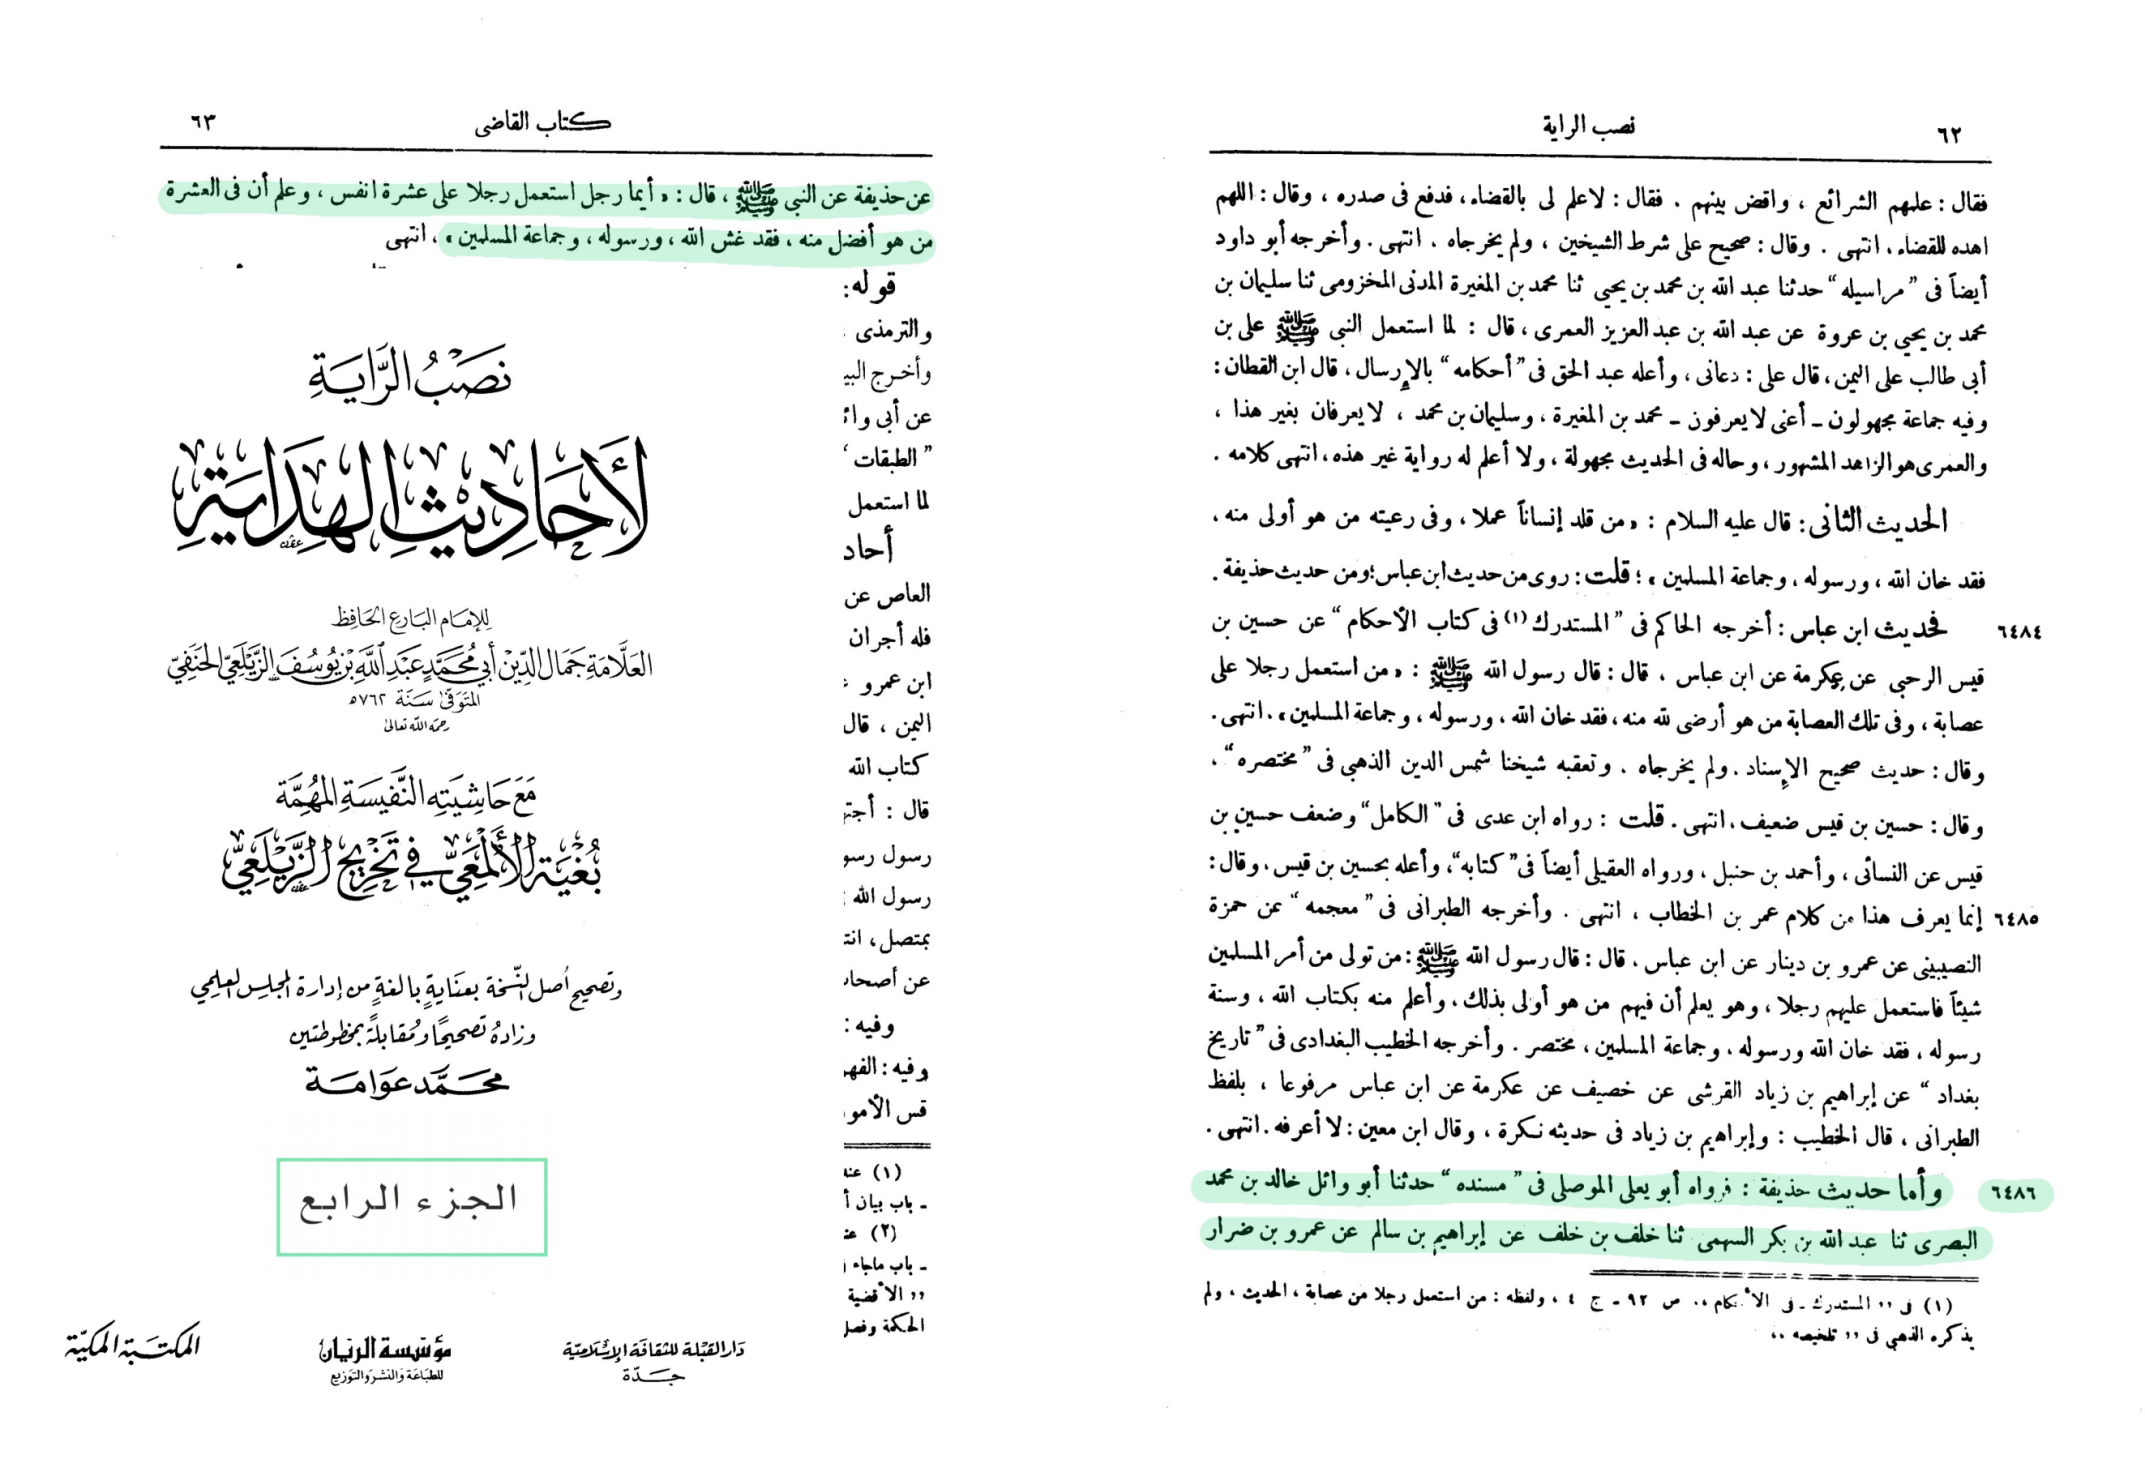 نصب الراية
٦٢
فقال : علهم الشرائع ، واقض بينهم . فقال : لاعلم لى بالقضاء ، فدفع فى صدره ، وقال : اللهم
اهده للقضاء . انتهى . وقال : صحيح على شرط الشيخين ، ولم يخرجاه . انتهى . وأخرجه أبو داود
أيضاً فى " مراسيله " حدثنا عبد الله بن محمد بن يحيي ثنا محمد بن المغيرة المدنى المخزومى ثنا سليمان بن
محمد بن يحيي بن عروة عن عبد الله بن عبد العزيز العمرى ، قال : لما استعمل النبى ﷺ على بن
أبى طالب على اليمن ، قال على : دعانى ، وأعله عبد الحق فى " أحكامه " بالإرسال ، قال ابن القطان :
وفيه جماعة مجهولون ـ أعنى لا يعرفون ـ محمد بن المغيرة ، وسليمان بن محمد ، لا يعرفان بغير هذا ،
والعمرى هو الزاهد المشهور ، وحاله فى الحديث مجهولة ، ولا أعلم له رواية غير هذه ، انتهى كلامه .
الحديث الثانى : قال عليه السلام : « من قلد إنساناً عملا ، وفى رعيته من هو أولى منه ،
فقد خان الله ، ورسوله ، وجماعة المسلمين » ؛ قلت : روى من حديث ابن عباس ؛ ومن حديث حذيفة .
٦٤٨٤ فحديث ابن عباس : أخرجه الحاكم فى " المستدرك (١) فى كتاب الأحكام " عن حسين بن
قيس الرحبى عن عكرمة عن ابن عباس ، قال : قال رسول الله ﷺ : « من استعمل رجلا على
عصابة ، وفى تلك العصابة من هو أرضى لله منه ، فقد خان الله ، ورسوله ، وجماعة المسلمين » . انتهى .
وقال : حديث صحيح الإسناد . ولم يخرجاه . وتعقبه شيخنا شمس الدين الذهبى فى " مختصره " ،
وقال : حسين بن قيس ضعيف . انتهى . قلت : رواه ابن عدى فى " الكامل " وضعف حسين بن
قيس عن النسائى ، وأحمد بن حنبل ، ورواه العقيلى أيضاً فى " كتابه " ، وأعله بحسين بن قيس . وقال :
٦٤٨٥ إنما يعرف هذا من كلام عمر بن الخطاب ، انتهى . وأخرجه الطبرانى فى " معجمه " عن حمزة
النصيبينى عن عمرو بن دينار عن ابن عباس . قال : قال رسول الله ﷺ : من تولى من أمر المسلمين
شيئاً فاستعمل عليهم رجلا ، وهو يعلم أن فيهم من هو أولى بذلك . وأعلم منه بكتاب الله ، وسنة
رسوله ، فقد خان الله ورسوله . وجماعة المسلمين ، مختصر . وأخرجه الخطيب البغدادى فى " تاريخ
بغداد " عن إبراهيم بن زياد القرشى عن خصيف عن عكرمة عن ابن عباس مرفوعا ، بلفظ
الطبرانى ، قال الخطيب : وإبراهيم بن زياد فى حديثه نكرة ، وقال ابن معين : لا أعرفه . انتهى .
٦٤٨٦ وأما حديث حذيفة : فرواه أبو يعلى الموصلى فى " مسنده " حدثنا أبو وائل خالد بن محمد
البصرى ثنا عبد الله بن بكر السهمى ثنا خلف بن خلف عن إبراهيم بن سالم عن عمرو بن ضرار
(١) فى ,, المستدرك ـ فى الأحكام ,, ص ٩٢ ـ ج ٤ ، ولفظه : من استعمل رجلا من عصابة ، الحديث ، ولم
يذكره الذهبى فى ,, تلخيصه ,,
كتاب القاضى
٦٣
عن حذيفة عن النبى ﷺ ، قال : « أيما رجل استعمل رجلا على عشرة انفس ، وعلم أن فى العشرة
من هو أفضل منه ، فقد غش الله ، ورسوله ، وجماعة المسلمين » ، انتهى
قوله :
والترمذى
وأخرج البي
عن أبى وائ
" الطبقات "
لما استعمل
أحاد
العاص عن
فله أجران
ابن عمرو
اليمن ، قال
كتاب الله
قال : أجته
رسول رسو
رسول الله
بمتصل ، انت
عن أصحاب
وفيه :
وفيه : الفهو
قس الأمو
(١) عند
ـ باب بيان أ
(٢) عند
ـ باب ماجاء
,, الأقضية
الحكمة وفصل
نَصْبُ الرَّايَةِ
لأَحَادِيثِ الهِدَايَةِ
للإمام البارع الحافظ
العلّامة جمال الدين أبي محمد عبد الله بن يوسف الزيلعي الحنفي
المتوفى سنة ٧٦٢ هـ
رحمه الله تعالى
مع حاشيته النفيسة المهمة
بغية الألمعي في تخريج الزيلعي
وتصحيح أصل النسخة بعناية بالغة من إدارة المجلس العلمي
وزاده تصحيحًا ومقابلةً بمخطوطتين
محمد عوامة
الجزء الرابع
دار القبلة للثقافة الإسلامية
جدة
مؤسسة الريان
للطباعة والنشر والتوزيع
المكتبة المكية